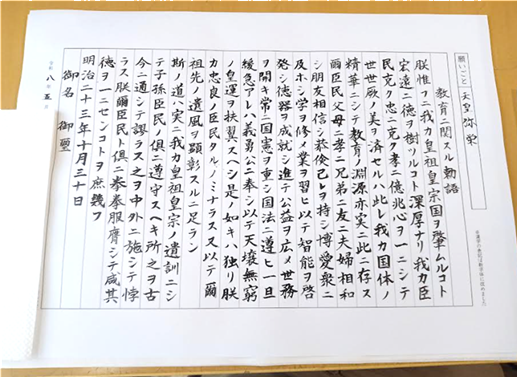 願いごと 天皇弥栄
教育ニ関スル勅語
朕惟フニ我カ皇祖皇宗国ヲ肇ムルコト
宏遠ニ徳ヲ樹ツルコト深厚ナリ我カ臣
民克ク忠ニ克ク孝ニ億兆心ヲ一ニシテ
世世厥ノ美ヲ済セルハ此レ我カ国体ノ
精華ニシテ教育ノ淵源亦実ニ此ニ存ス
爾臣民父母ニ孝ニ兄弟ニ友ニ夫婦相和
シ朋友相信シ恭倹己レヲ持シ博愛衆ニ
及ホシ学ヲ修メ業ヲ習ヒ以テ智能ヲ啓
発シ徳器ヲ成就シ進テ公益ヲ広メ世務
ヲ開キ常ニ国憲ヲ重シ国法ニ遵ヒ一旦
緩急アレハ義勇公ニ奉シ以テ天壌無窮
ノ皇運ヲ扶翼スヘシ是ノ如キハ独リ朕
カ忠良ノ臣民タルノミナラス又以テ爾
祖先ノ遺風ヲ顕彰スルニ足ラン
斯ノ道ハ実ニ我カ皇祖皇宗ノ遺訓ニシ
テ子孫臣民ノ倶ニ遵守スヘキ所之ヲ古
今ニ通シテ謬ラス之ヲ中外ニ施シテ悖
ラス朕爾臣民ト倶ニ拳拳服膺シテ咸其
徳ヲ一ニセンコトヲ庶幾フ
明治二十三年十月三十日
御名 御璽
令和 八年 五月